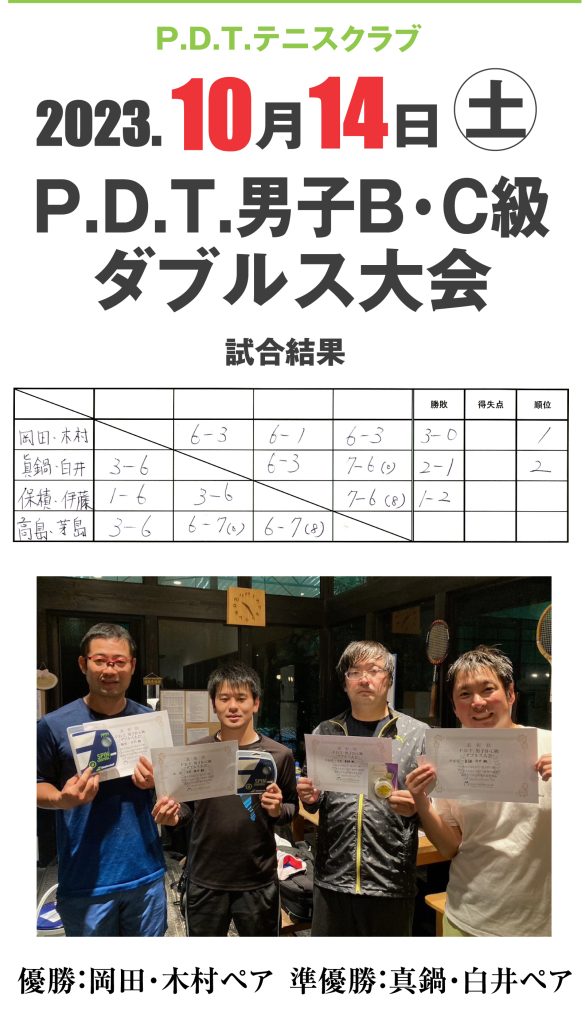 P.D.T.テニスクラブ
2023. 10月14日 土
P.D.T.男子B・C級
ダブルス大会
試合結果
勝敗 得失点 順位
岡田・木村 6-3 6-1 6-3 3-0 1
眞鍋・白井 3-6 6-3 7-6(0) 2-1 2
保積・伊藤 1-6 3-6 7-6(8) 1-2
高島・茅島 3-6 6-7(0) 6-7(8)
優勝：岡田・木村ペア 準優勝：真鍋・白井ペア